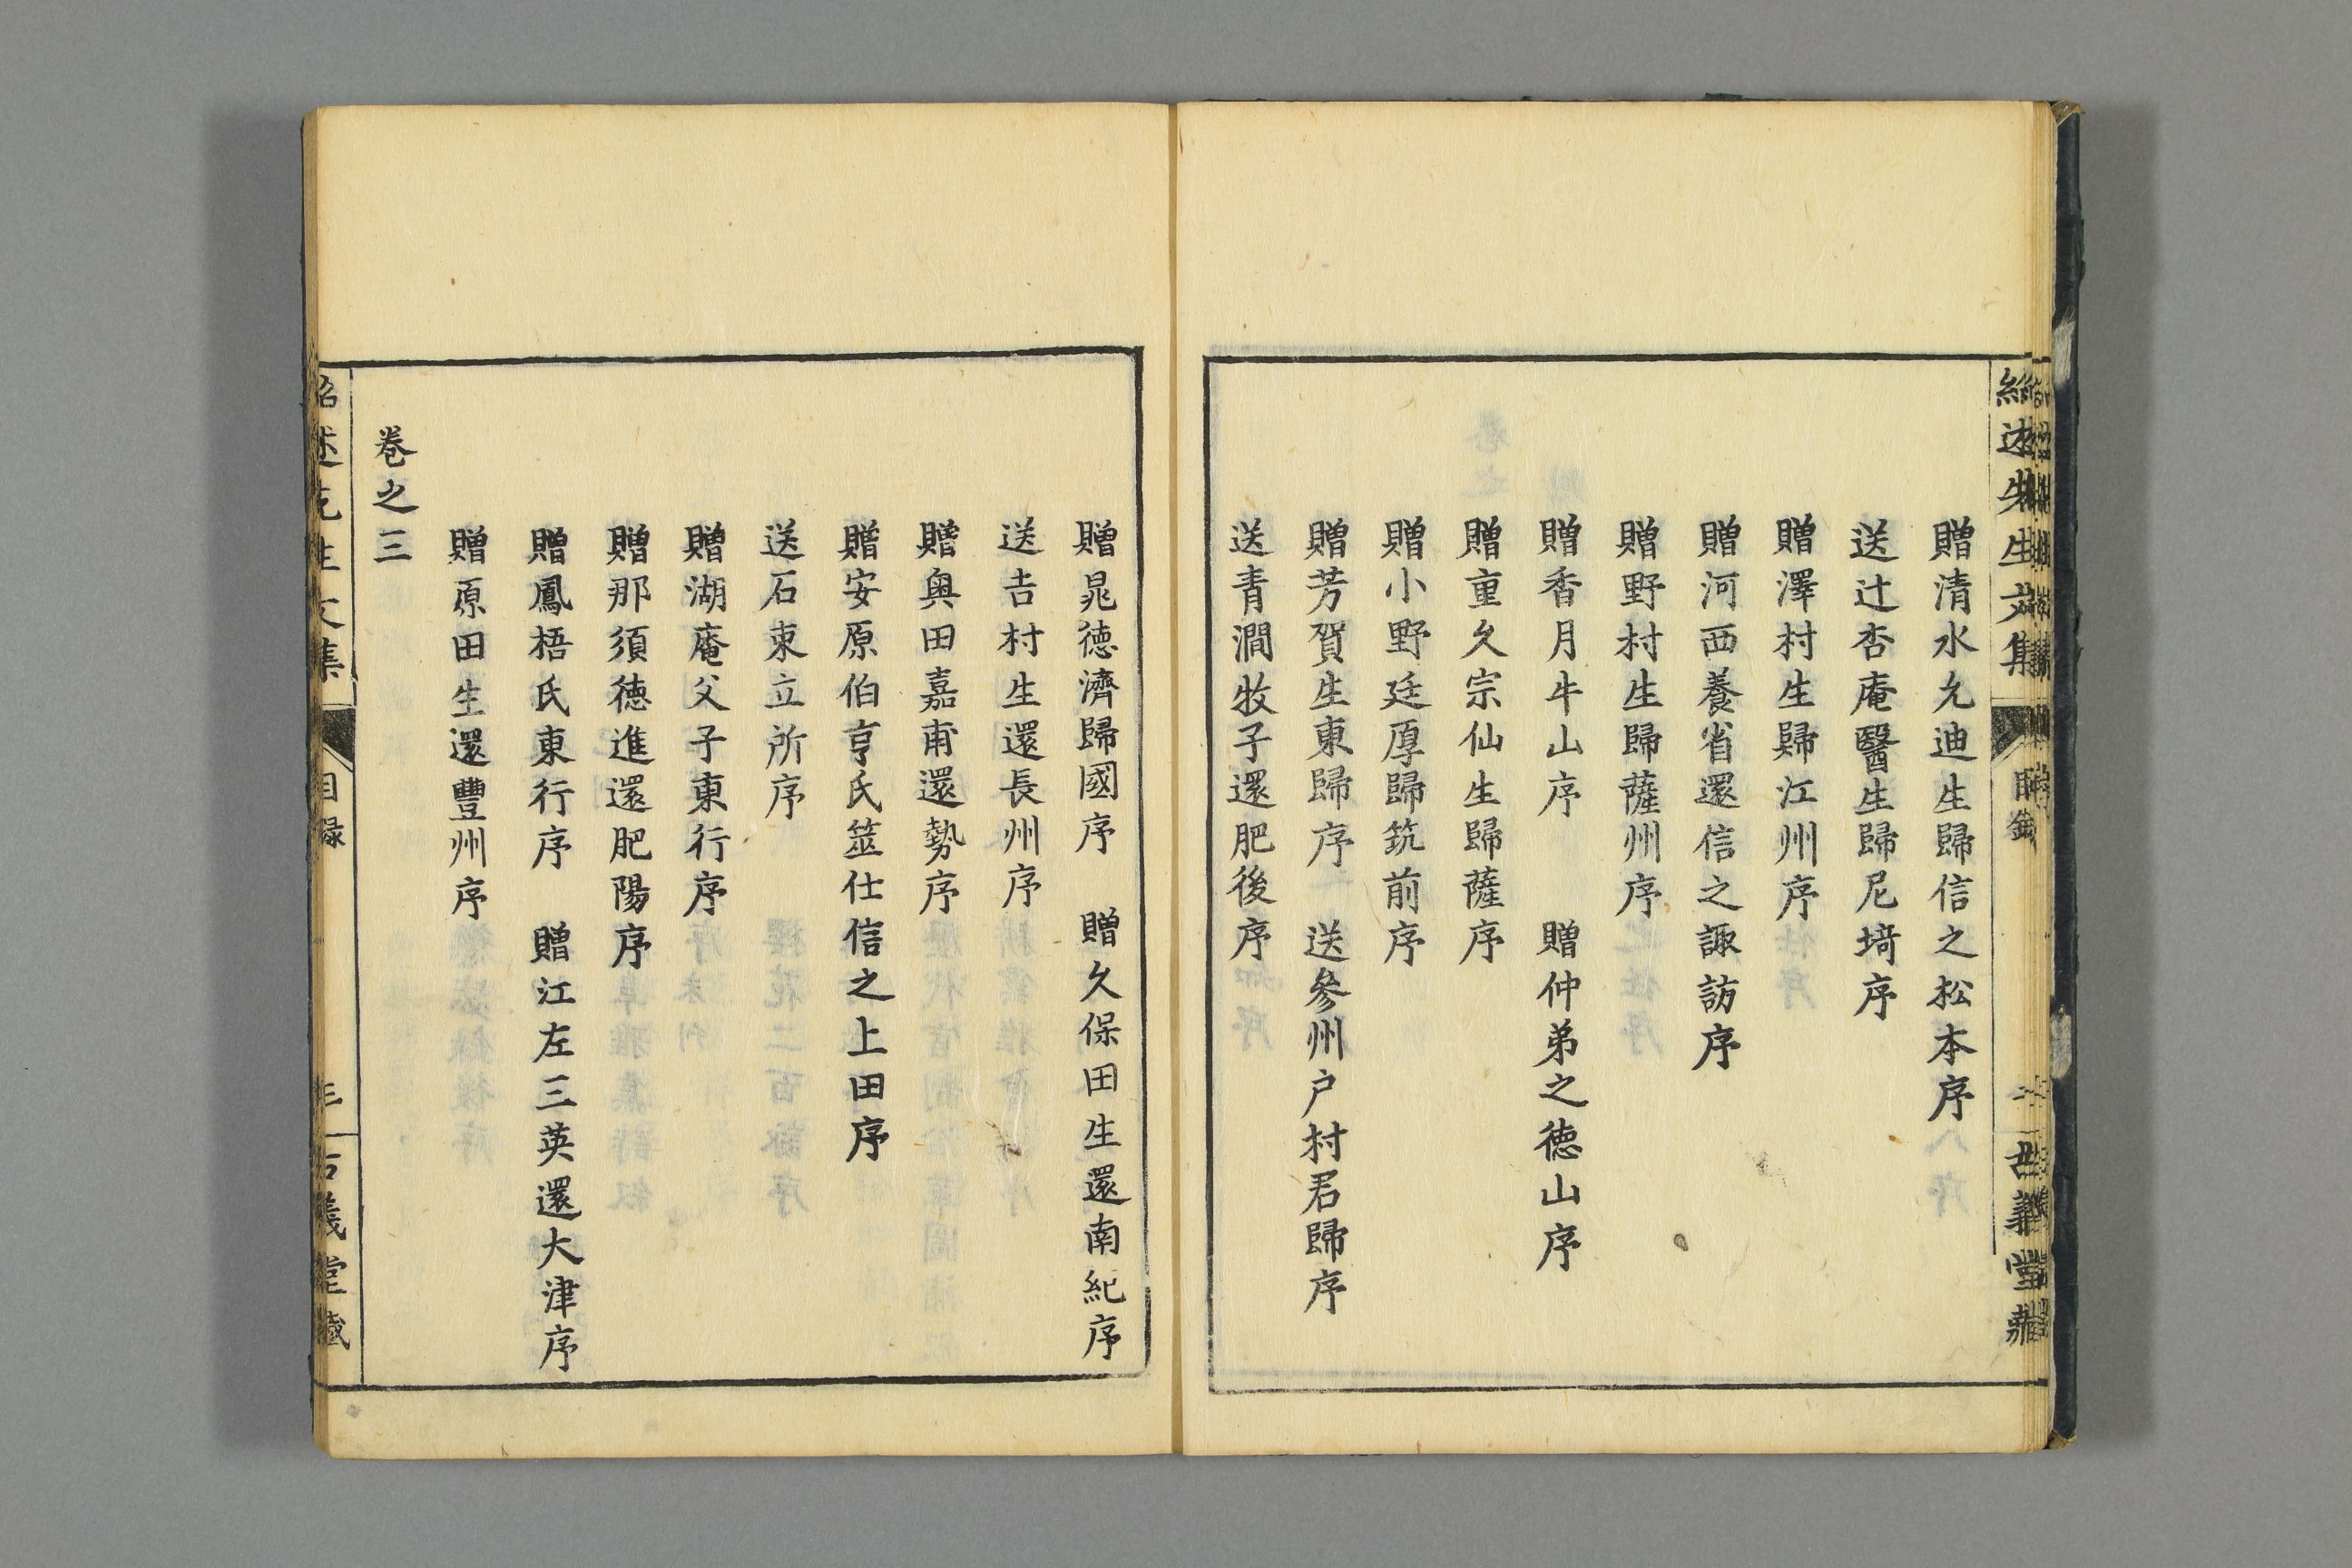 紹述先生文集 目録 二 古義堂藏
贈清水允迪生歸信之松本序
送辻杏庵醫生歸尼埼序
贈澤村生歸江州序
贈河西養省還信之諏訪序
贈野村生歸薩州序
贈香月牛山序 贈仲弟之德山序
贈重久宗仙生歸薩序
贈小野廷厚歸筑前序
贈芳賀生東歸序 送參州户村君歸序
送青澗牧子還肥後序
贈晁德濟歸國序 贈久保田生還南紀序
送吉村生還長州序
贈奥田嘉甫還勢序
贈安原伯亨氏筮仕信之上田序
送石東立所序
贈湖庵父子東行序
贈那須德進還肥陽序
贈鳳梧氏東行序 贈江左三英還大津序
贈原田生還豐州序
巻之三
紹述先生文集 目録 三 古義堂藏